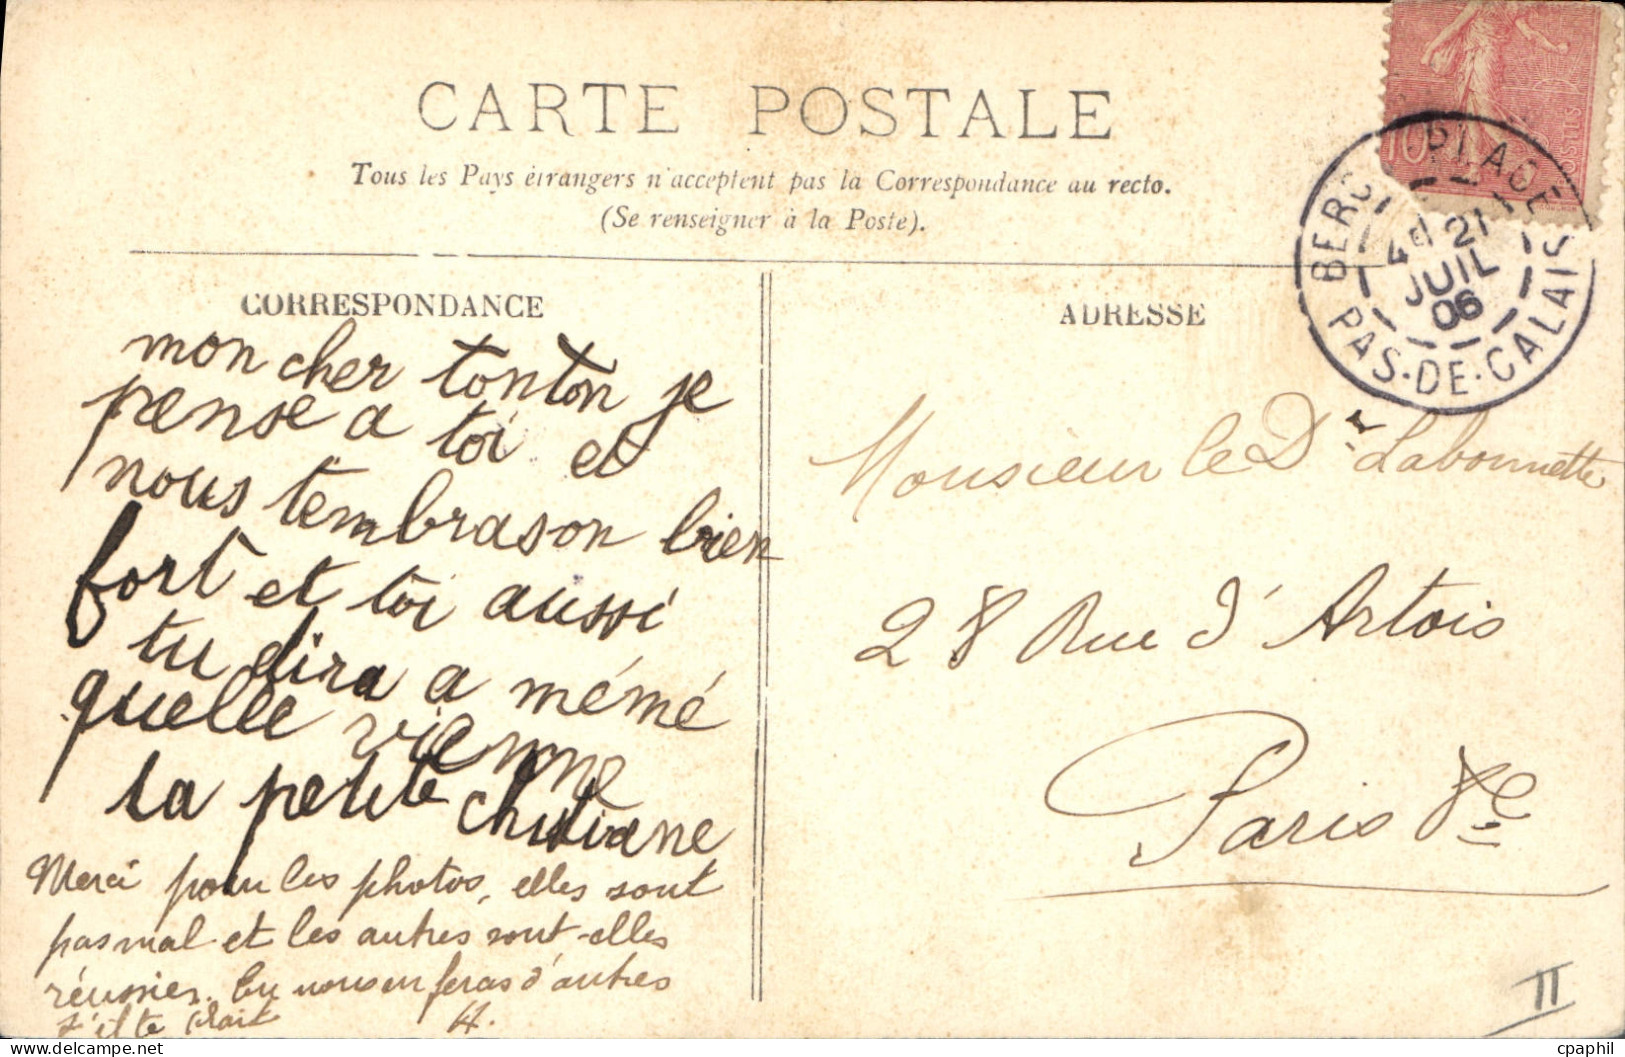 CARTE POSTALE
Tous les Pays étrangers n'acceptent pas la Correspondance au recto.
(Se renseigner à la Poste).
CORRESPONDANCE
mon cher tonton je
pense a toi et
nous tembrason bien
fort et toi aussi
tu dira a mémé
quelle vienne
ta petite christiane
Merci pour les photos, elles sont
pas mal et les autres sont-elles
réussies. Tu nous en feras d'autres
s'il te plait H.
ADRESSE
Monsieur le Dr Labonnette
28 Rue d'Artois
Paris
10 POSTES
BERCK PLAGE
21
JUIL
06
PAS-DE-CALAIS
II
cpaphil